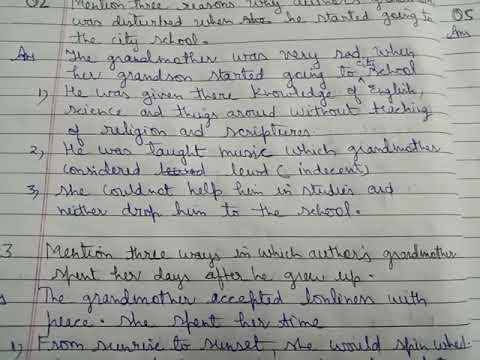 Q2 Mention three reasons why author's
was disturbed when he started going to
the city school.
05
Ans
Ans The grandmother was very sad when
her grandson started going to city school
1) He was given there knowledge of English,
science and things around without teaching
of religion and scriptures
2, He was taught music which grandmother
considered lewd (indecent)
3, She could not help him in studies and
neither drop him to the school.
3 Mention three ways in which author's grandmother
spent her days after he grew up.
The grandmother accepted lonliness with
peace. She spent her time
1) From sunrise to sunset, she would spin whel-